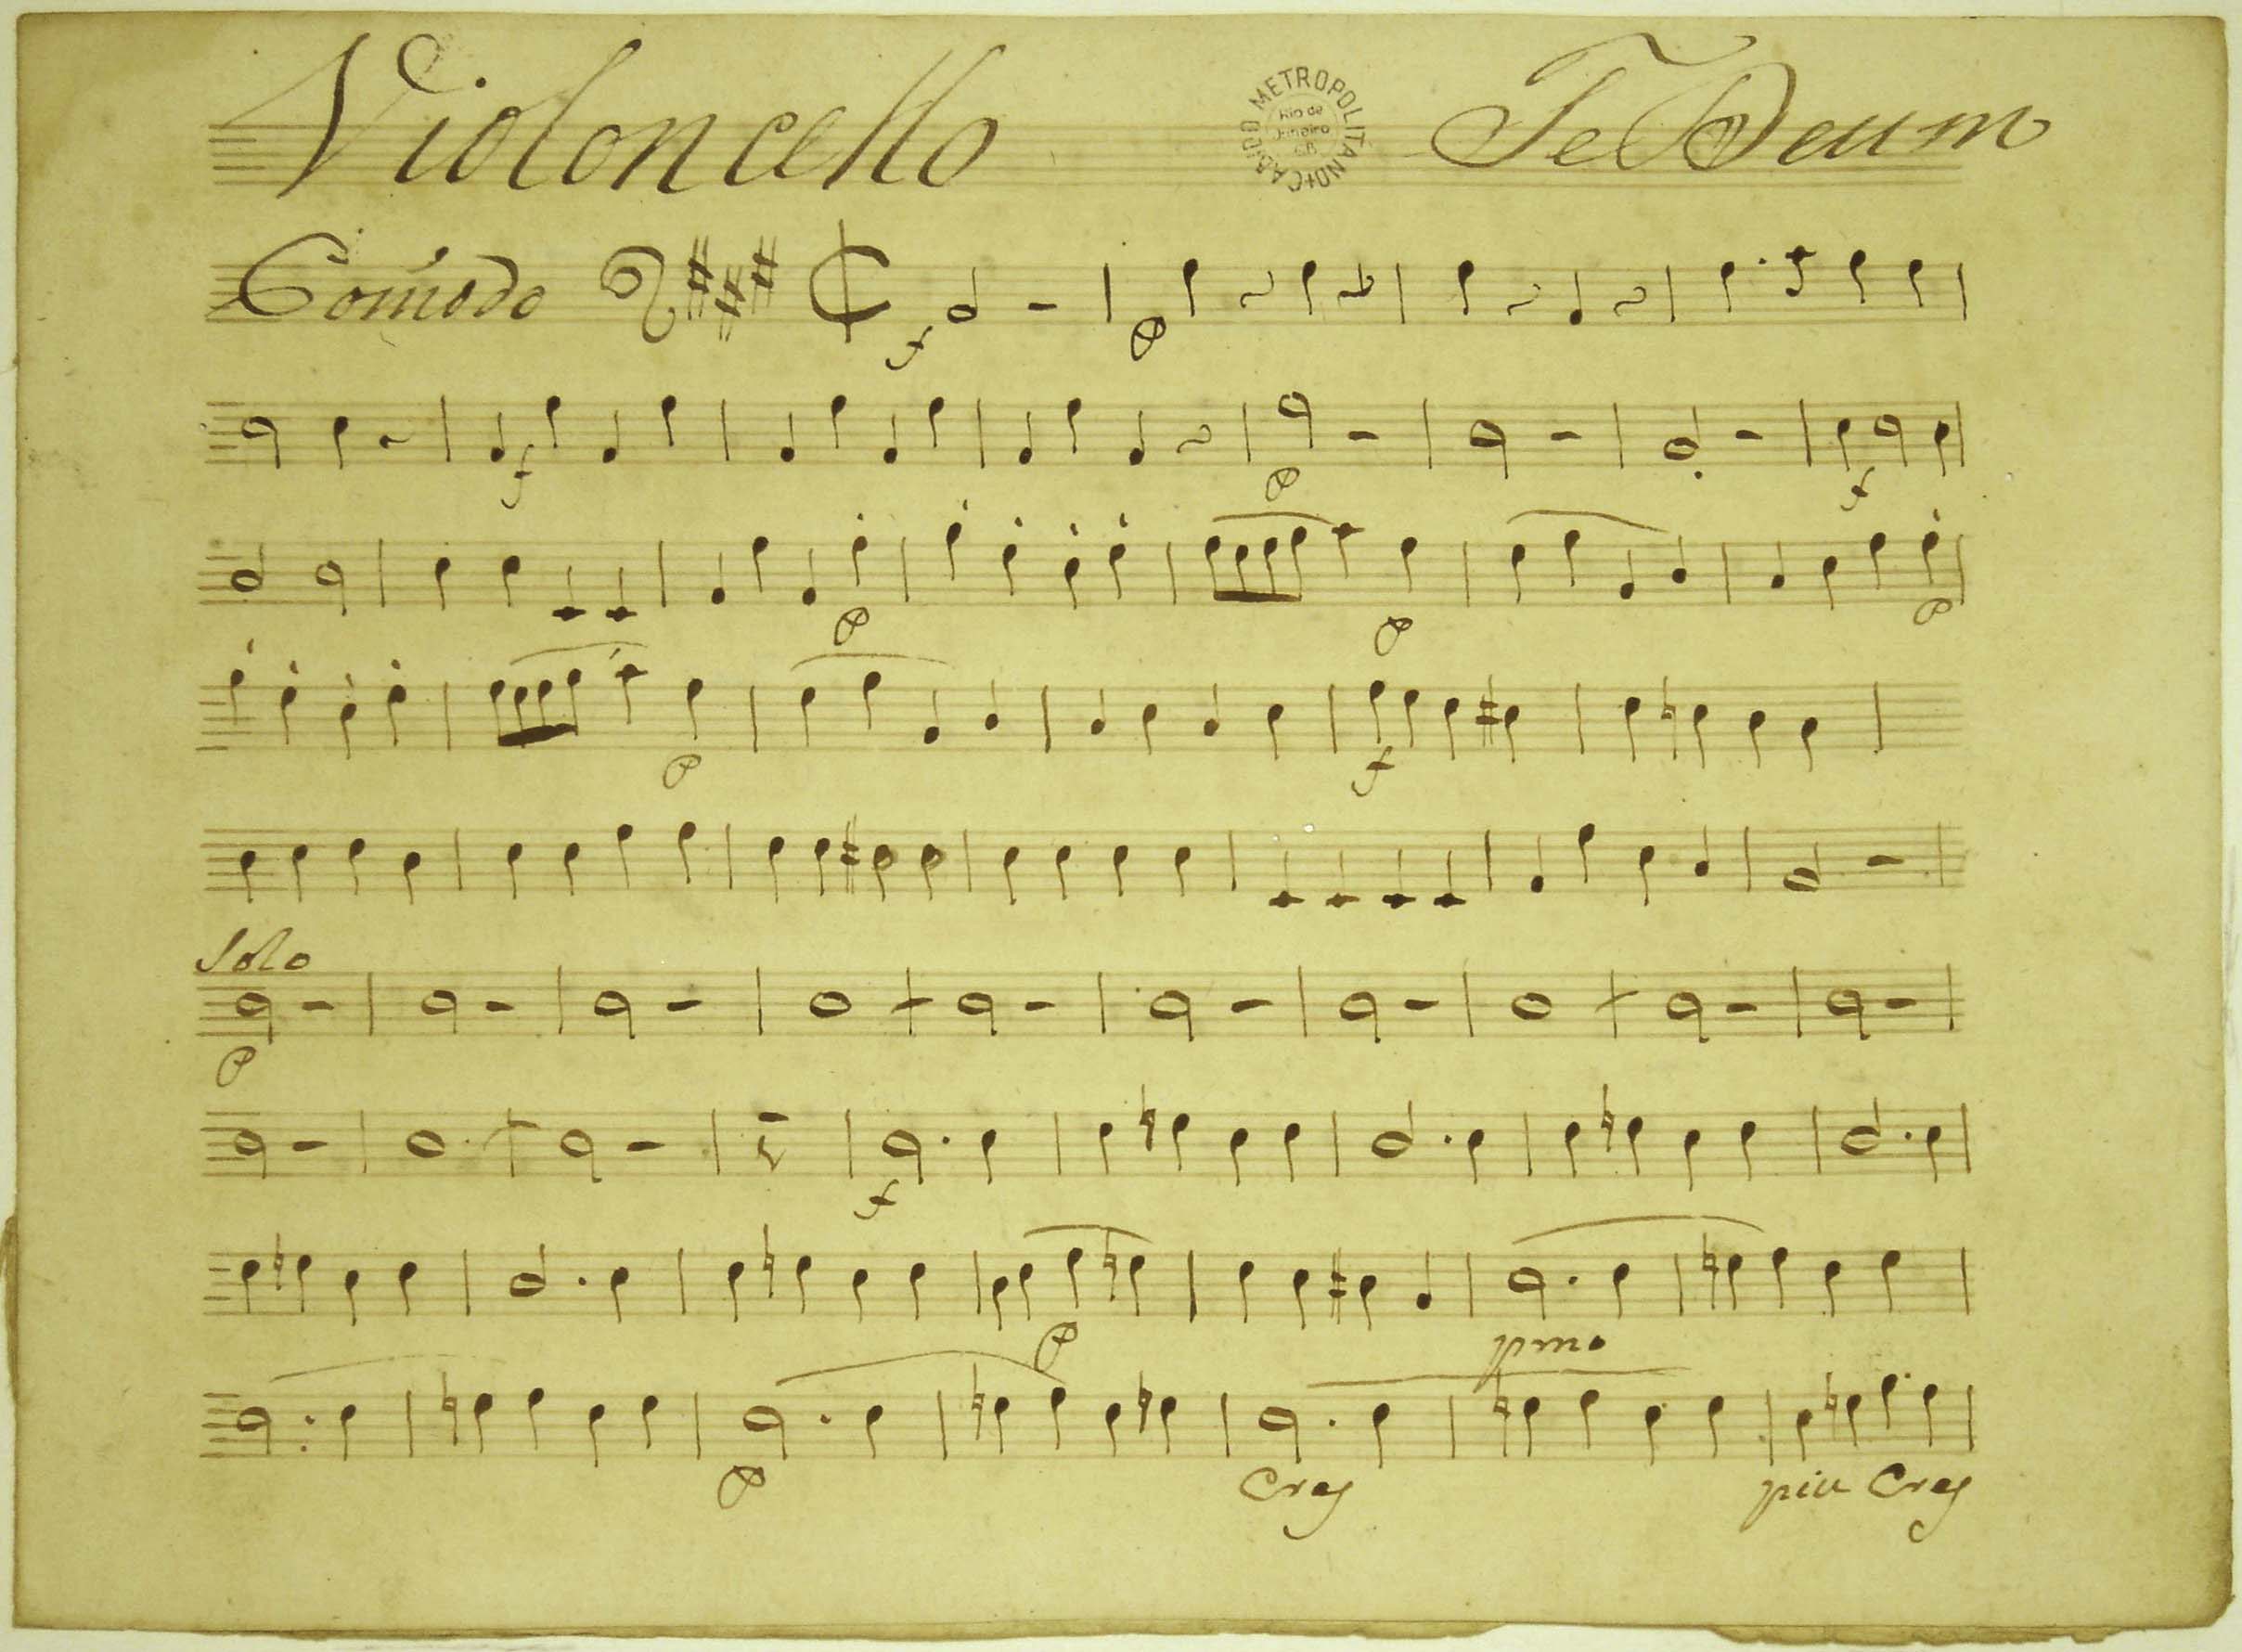 Violoncello
CABIDO METROPOLITANO
Rio de
Janeiro
Te Deum
Comodo
f
p
f
p
f
p
p
p
p
f
Solo
p
f
p
pmo
p
Cres
piu Cres